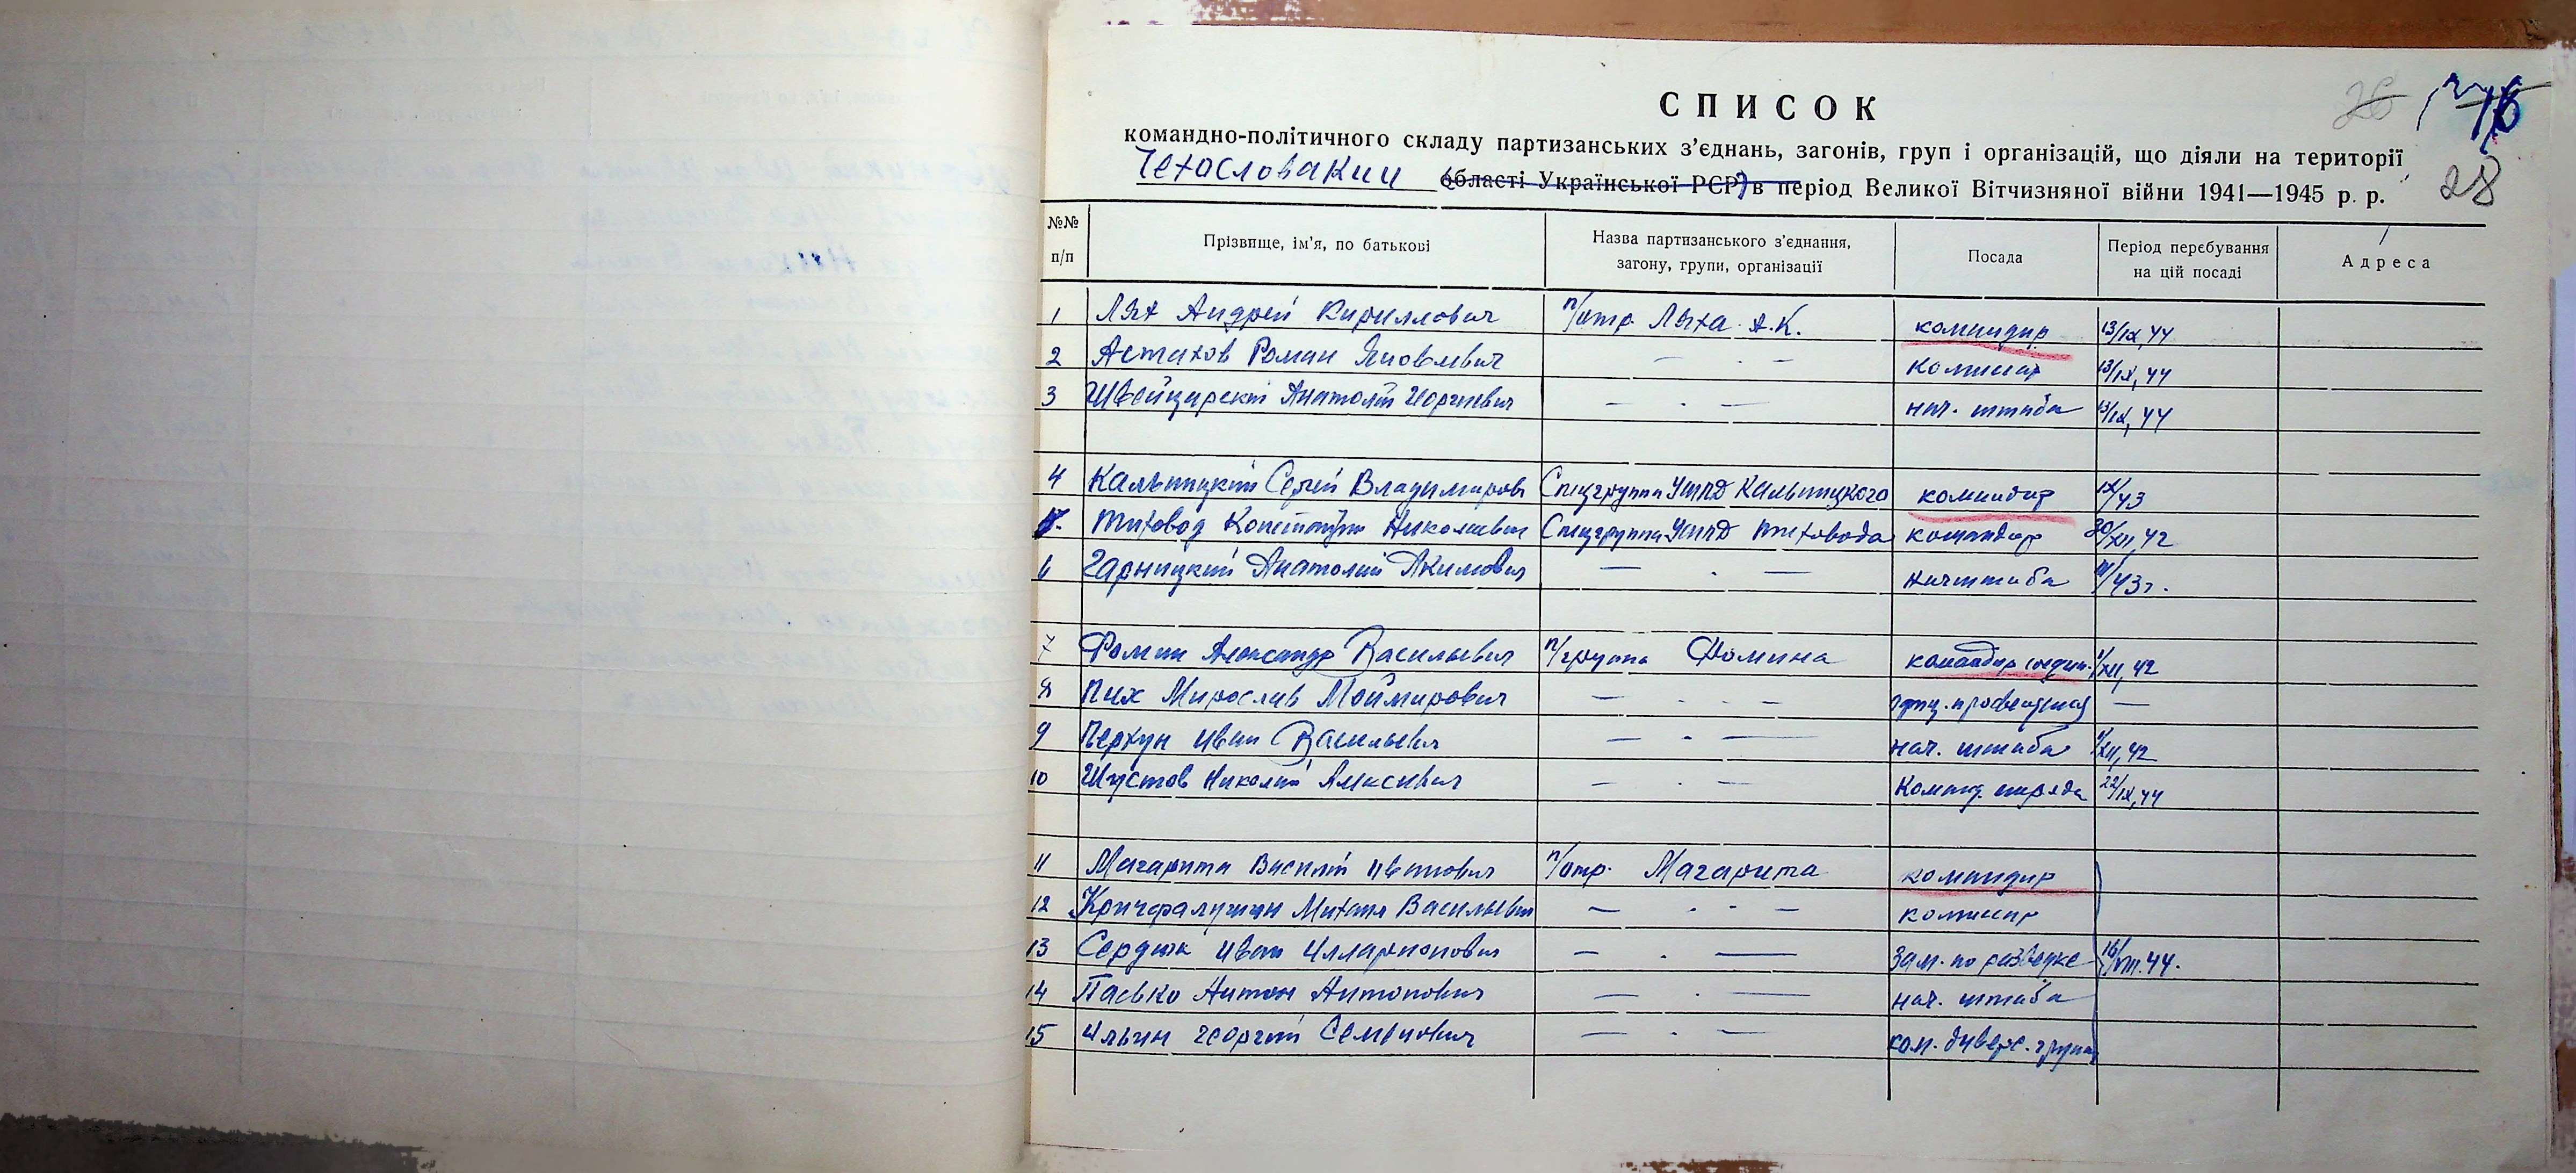 26
28
СПИСОК
командно-політичного складу партизанських з'єднань, загонів, груп і організацій, що діяли на території
Чехословакии області Української РСР в період Великої Вітчизняної війни 1941—1945 р. р.
№№ п/п Прізвище, ім'я, по батькові Назва партизанського з'єднання, загону, групи, організації Посада Період перебування на цій посаді Адреса
1 Лях Андрей Кириллович п/отр. Ляха А.К. командир 13/IX, 44
2 Астахов Роман Яковлевич — · — комиссар 13/IX, 44
3 Швейцарский Анатолий Георгиевич — · — нач. штаба 13/IX, 44
4 Кальницкий Сергей Владимиров Спецгруппа УШПД Кальницкого командир IX/43
5. Тиховод Константин Николаевич Спецгруппа УШПД Тиховода командир 30/XII, 42
6 Гарницкий Анатолий Акимович — · — начштаба 43г.
7 Фомин Александр Васильевич п/группа Фомина командир соедин. 1/XII, 42
8 Пих Мирослав Моймирович — · · — —
9 Перхун Иван Васильевич — · — нач. штаба 1/XII, 42
10 Шустов Николай Алексеевич — · — Команд. отряда 22/IX, 44
11 Магарита Василий Иванович п/отр. Магарита командир
12 Михаил Васильевич — · · — комиссар
13 Сердюк Иван Илларионович — · — Зам. по разведке 16/VIII. 44.
14 Пасько Антон Антонович — · — нач. штаба
15 Ильин Георгий Семенович — · — ком. диверс. группы